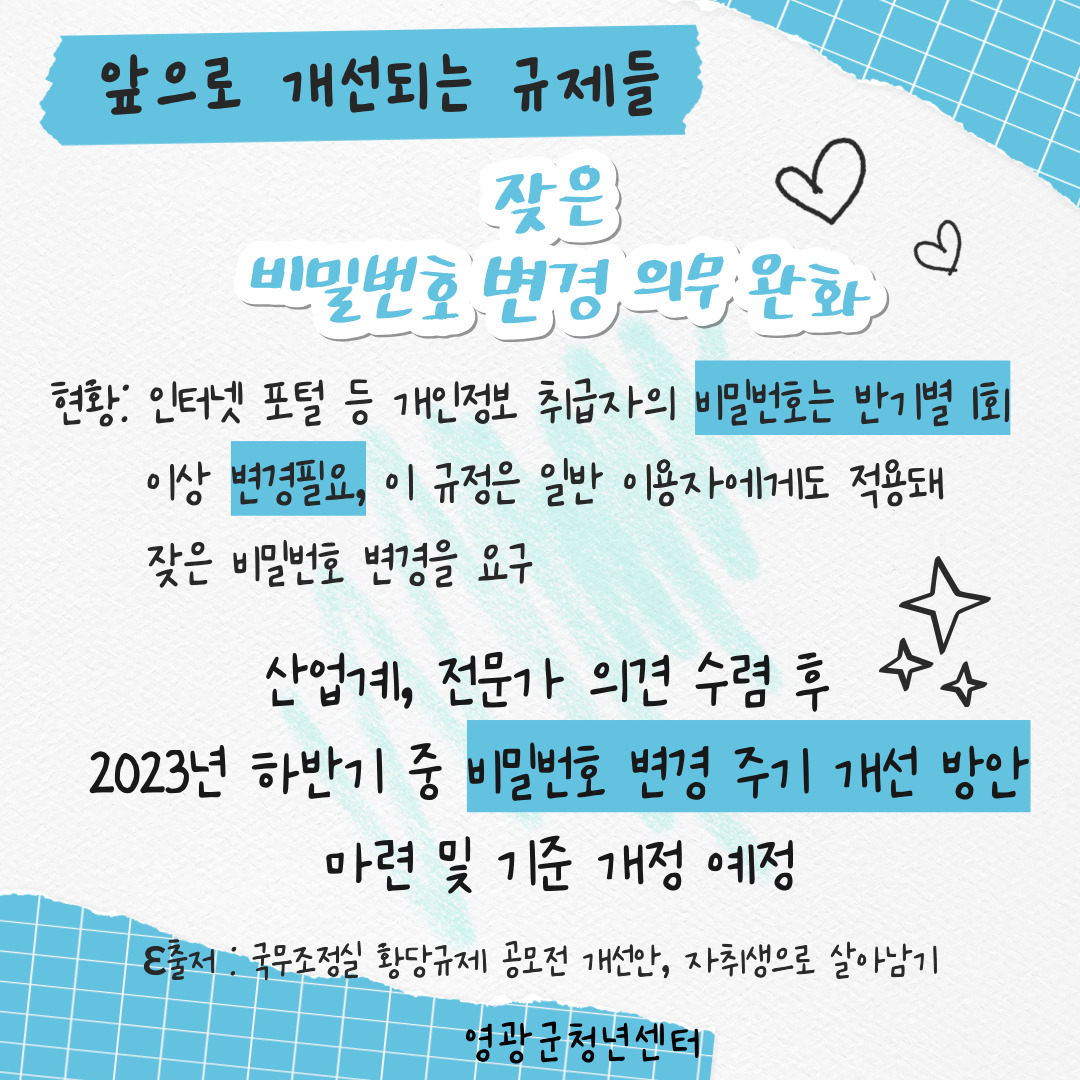 앞으로 개선되는 규제들
잦은
비밀번호 변경 의무 완화
현황: 인터넷 포털 등 개인정보 취급자의 비밀번호는 반기별 1회
이상 변경필요, 이 규정은 일반 이용자에게도 적용돼
잦은 비밀번호 변경을 요구
산업계, 전문가 의견 수렴 후
2023년 하반기 중 비밀번호 변경 주기 개선 방안
마련 및 기준 개정 예정
ε출저 : 국무조정실 황당규제 공모전 개선안, 자취생으로 살아남기
영광군청년센터